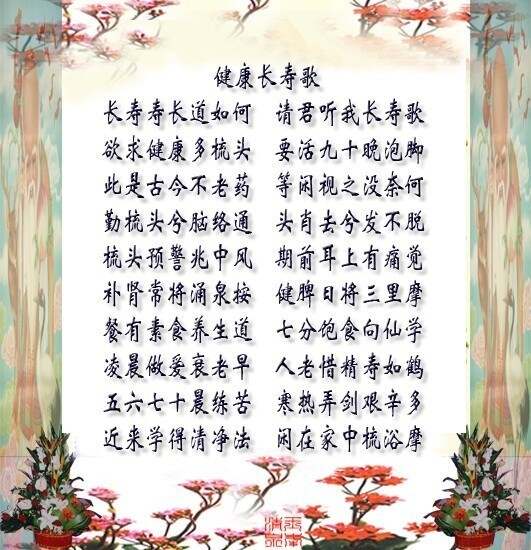 健康长寿歌
长寿寿长道如何 请君听我长寿歌
欲求健康多梳头 要活九十晚泡脚
此是古今不老药 等闲视之没奈何
勤梳头兮脑络通 头肖去兮发不脱
梳头预警兆中风 期前耳上有痛觉
补肾常将涌泉按 健脾日将三里摩
餐有素食养生道 七分饱食向仙学
凌晨做爱衰老早 人老惜精寿如鹤
五六七十晨练苦 寒热弄剑艰辛多
近来学得清净法 闲在家中梳浴摩